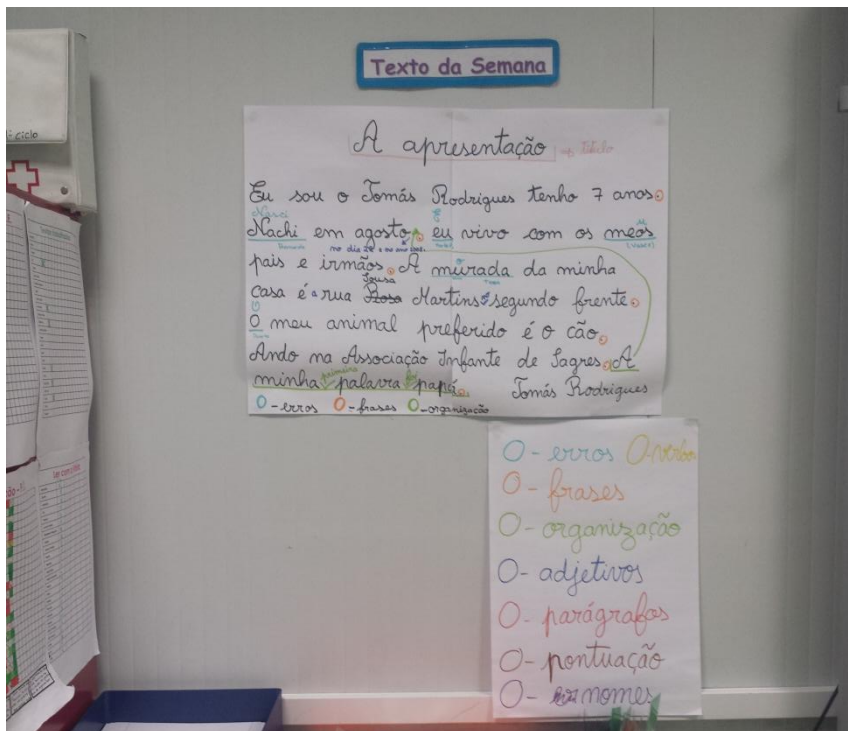 Texto da Semana
A apresentação → Título
Eu sou o Tomás Rodrigues tenho 7 anos.
Nasci
Nachi em agosto, eu vivo com os meos
no dia
pais e irmãos. A murada da minha
Sousa
casa é a rua Rosa Martins segundo frente.
O meu animal preferido é o cão.
Ando na Associação Infante de Sagres. A
primeira foi
minha palavra papá. Tomás Rodrigues
O - erros O - frases O - organização
O - erros O - verbos
O - frases
O - organização
O - adjetivos
O - parágrafos
O - pontuação
O - nomes
ciclo